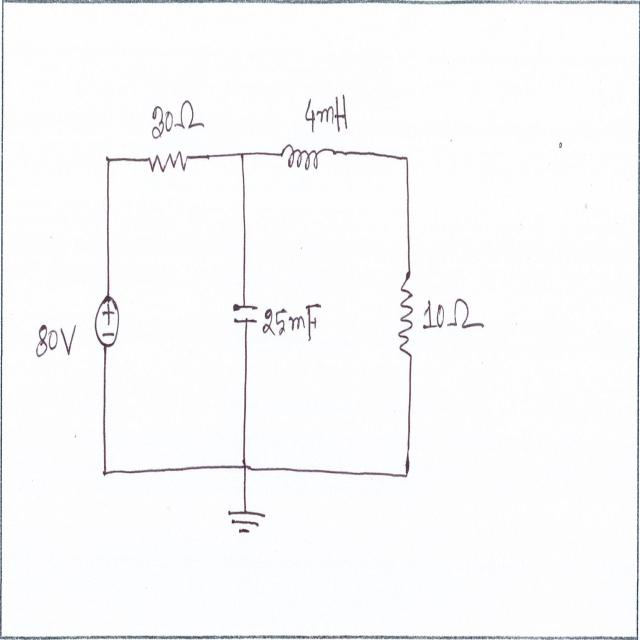 30Ω
4mH
80V
+
−
25mF
10Ω